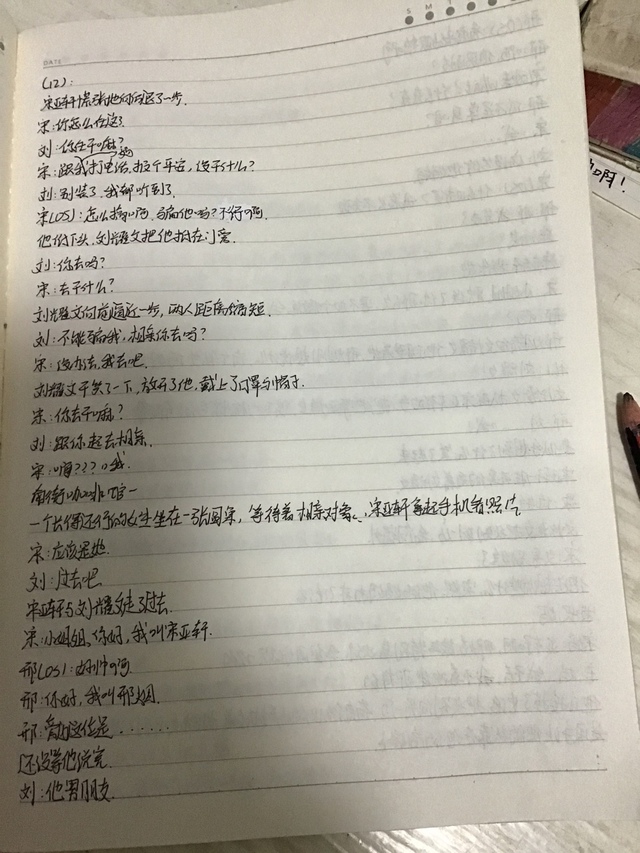 S M T
DATE
(12):
宋亚轩慌张地向后退了一步.
宋:你怎么在这?
刘:你在干嘛?
宋:跟我妈打电话,找个耳逗,没干什么?
刘:别装了,我都听到了.
宋(OS):怎么搞啊,骗他吗?不行啊
他低下头,刘耀文把他抵在门旁.
刘:你去吗?
宋:去干什么?
刘耀文向前逼近一步,两人距离缩短.
刘:不够骗我,相亲你去吗?
宋:没办法,我去吧.
刘耀文干笑了一下,放开了他,戴上了口罩与帽子.
宋:你去干嘛?
刘:跟你一起去相亲.
宋:嗨???我.
南街咖啡馆一
一个长得还行的女生坐在一张圆桌,等待着相亲对象.,宋亚轩拿起手机看照片.
宋:应该是她.
刘:过去吧
宋亚轩与刘耀文走了过去.
宋:小姐姐,你好,我叫宋亚轩.
邢(OS):好帅啊
邢:你好,我叫邢烟.
邢:旁边这位是......
还没等他说完
刘:他男朋友.
啊!